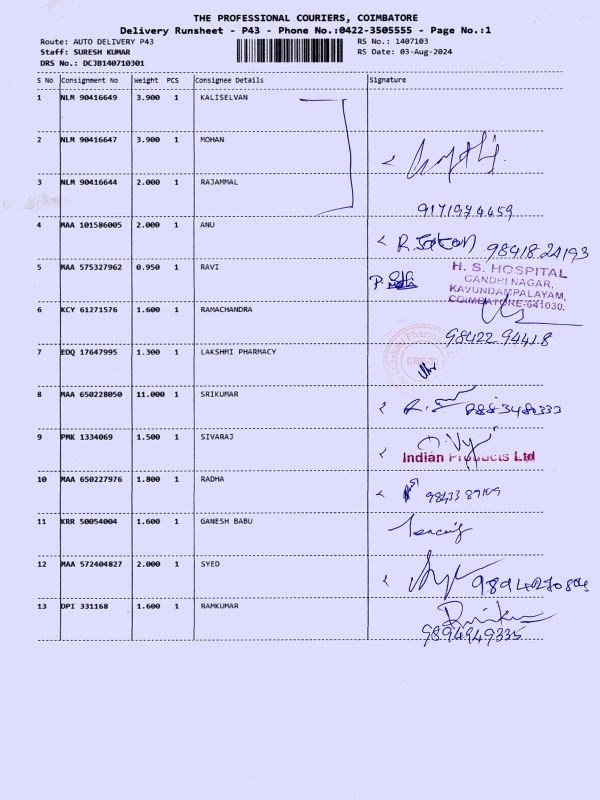 THE PROFESSIONAL COURIERS, COIMBATORE
Delivery Runsheet - P43 - Phone No.:0422-3505555 - Page No.:1
Route: AUTO DELIVERY P43
RS No.: 1407103
Staff: SURESH KUMAR
RS Date: 03-Aug-2024
DRS No.: DCJB140710301
S No Consignment No Weight PCS Consignee Details Signature
1 NLM 90416649 3.900 1 KALISELVAN
2 NLM 90416647 3.900 1 MOHAN
3 NLM 90416644 2.000 1 RAJAMMAL
9171974459
4 MAA 101586005 2.000 1 ANU
98418 24193
5 MAA 575327962 0.950 1 RAVI
H. S. HOSPITAL
GANDHI NAGAR,
KAVUNDAMPALAYAM,
COIMBATORE-641030.
6 KCY 61271576 1.600 1 RAMACHANDRA
98422 94418
7 EDQ 17647995 1.300 1 LAKSHMI PHARMACY
Lakshmi Pharmacy
8 MAA 650228050 11.000 1 SRIKUMAR
9 PMK 1334069 1.500 1 SIVARAJ
Indian Products Ltd
10 MAA 650227976 1.800 1 RADHA
11 KRR 50054004 1.600 1 GANESH BABU
12 MAA 572404827 2.000 1 SYED
13 DPI 331168 1.600 1 RAMKUMAR
9894949335